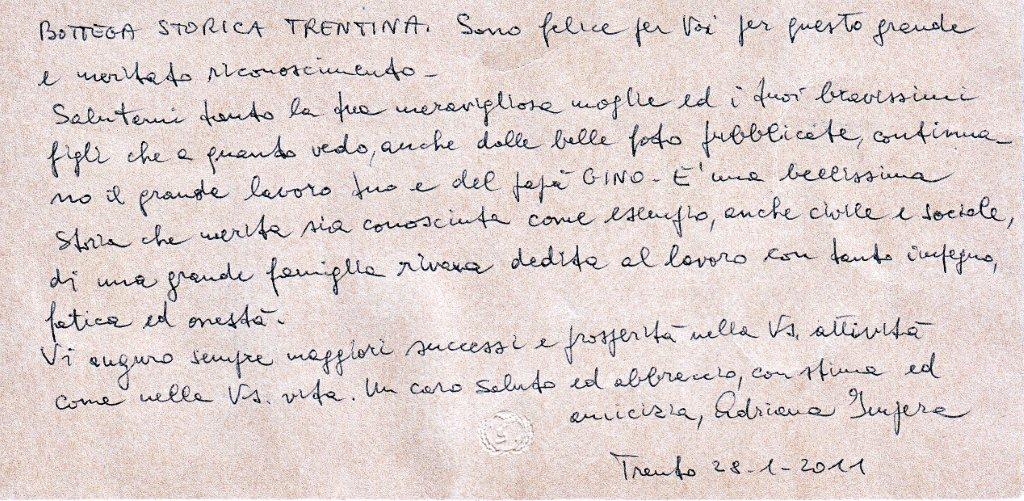 BOTTEGA STORICA TRENTINA. Sono felice per Voi per questo grande
e meritato riconoscimento -
Salutami tanto la tua meravigliosa moglie ed i tuoi bravissimi
figli che a quanto vedo, anche dalle belle foto pubblicate, continua-
no il grande lavoro tuo e del papà GINO - E' una bellissima
storia che merita sia conosciuta come esempio, anche civile e sociale,
di una grande famiglia rivana dedita al lavoro con tanto impegno,
fatica ed onestà.
Vi auguro sempre maggiori successi e prosperità nella Vs. attività
come nella Vs. vita. Un caro saluto ed abbraccio, con stima ed
amicizia, Adriana
Trento 28-1-2011